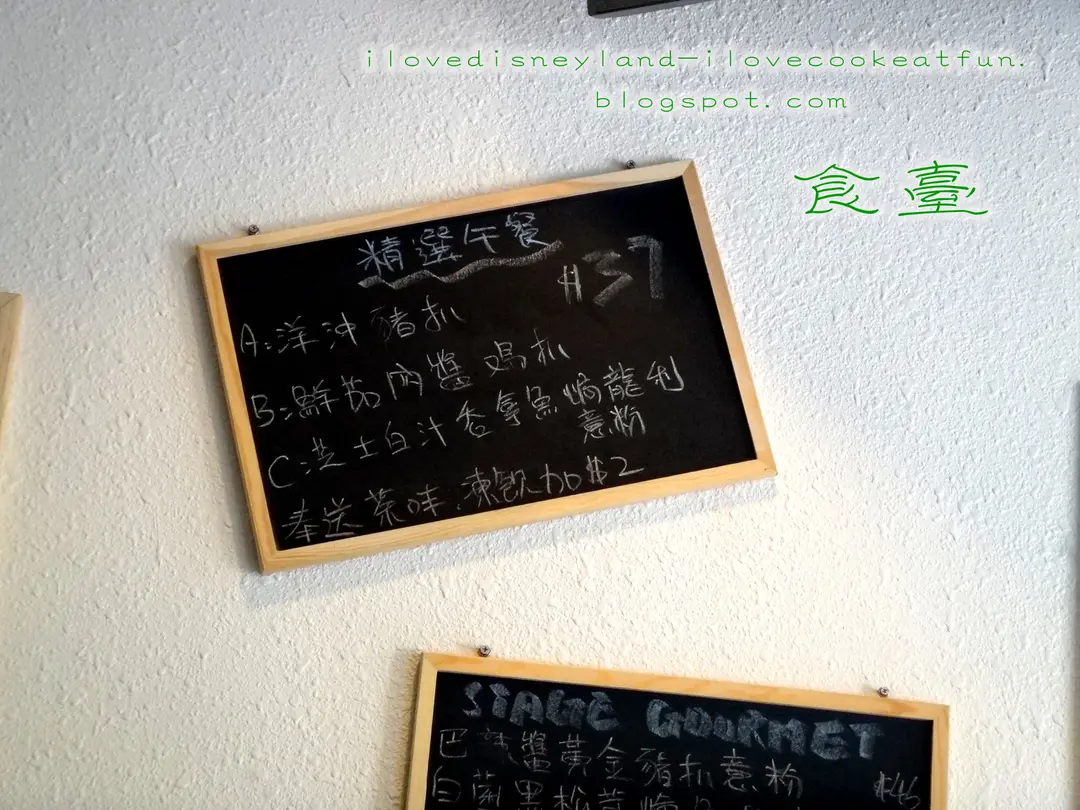 ilovedisneyland-ilovecookeatfun.
blogspot.com
食臺
精選午餐
$37
A:洋沖豬扒
B:鮮茄肉醬鸡扒
C:芝士白汁香拿魚焗龍利
意粉
奉送茶味,凍飲加$2
STAGE GOURMET
巴醬黃金豬扒意粉
$46
白菌黑松